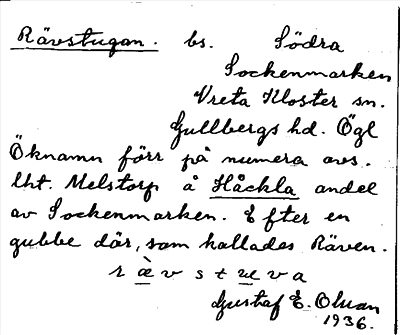 Rävstugan. bs. Södra
Sockenmarken
Vreta Kloster sn.
Gullbergs hd. Ögl
Öknamn förr på numera avs.
lht. Melstorp å Håckla andel
av Sockenmarken. Efter en
gubbe där, som kallades Räven.
r æ̀ v s t u e v a
Gustaf E. Olsson
1936.